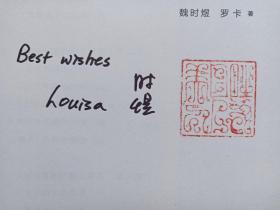 魏时煜 罗卡 著
Best wishes
Louisa
时煜